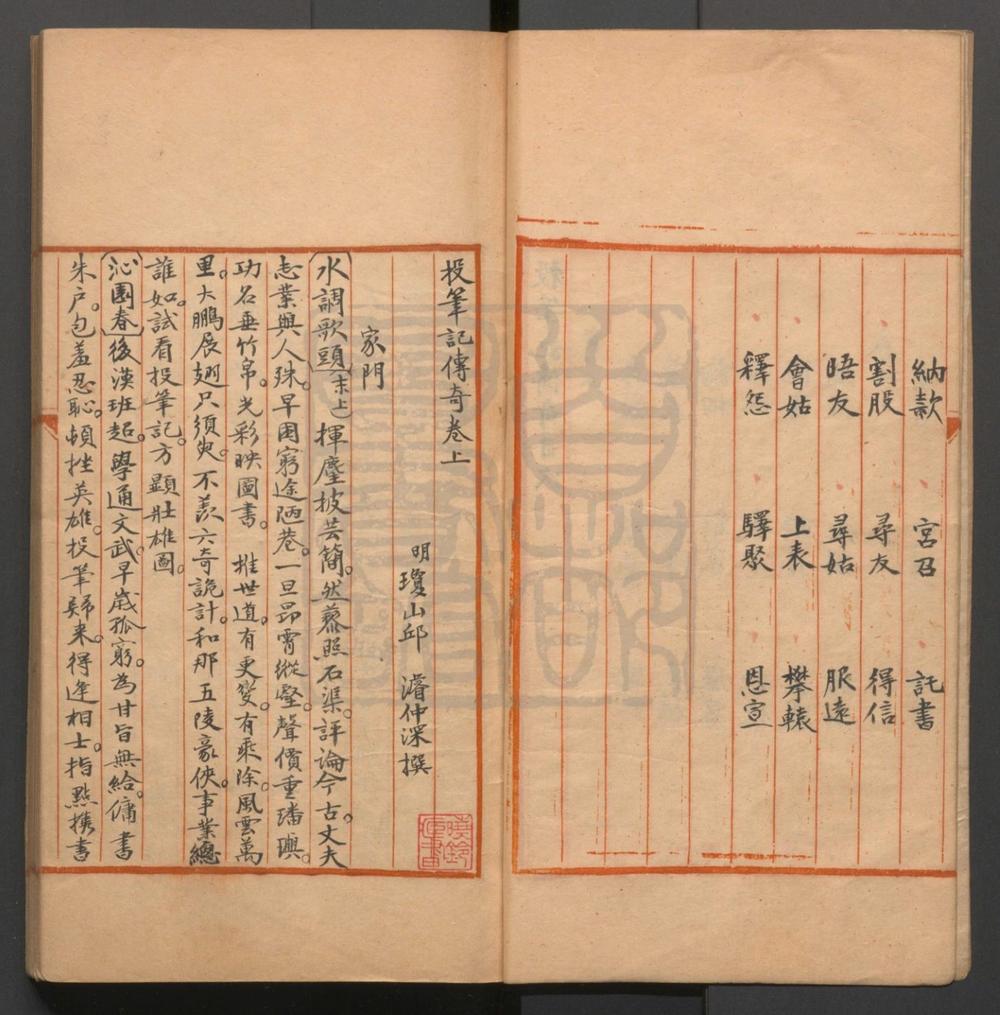 納款　宮召　託書
割股　尋友　得信
晤友　尋姑　服遠
會姑　上表　攀轅
釋怨　驛聚　恩宣
投筆記傳奇卷上
明瓊山邱　濬仲深撰
家門
（水調歌頭）（末上）揮麈披芸簡。然藜照石渠。評論今古。丈夫
志業與人殊。早困窮途陋巷。一旦昂霄縱壑。聲價重璠璵。
功名垂竹帛。光彩映圖書。　推世道。有更變。有乘除。風雲萬
里。大鵬展翅只須臾。不羨六奇詭計。和那五陵豪俠。事業總
誰如。試看投筆記。方顯壯雄圖。
（沁園春）後漢班超。學通文武。早歲孤窮。為甘旨無給。傭書
朱戶。包羞忍恥。頓挫英雄。投筆歸來。得逢相士。指點攜書
曉鈴藏書